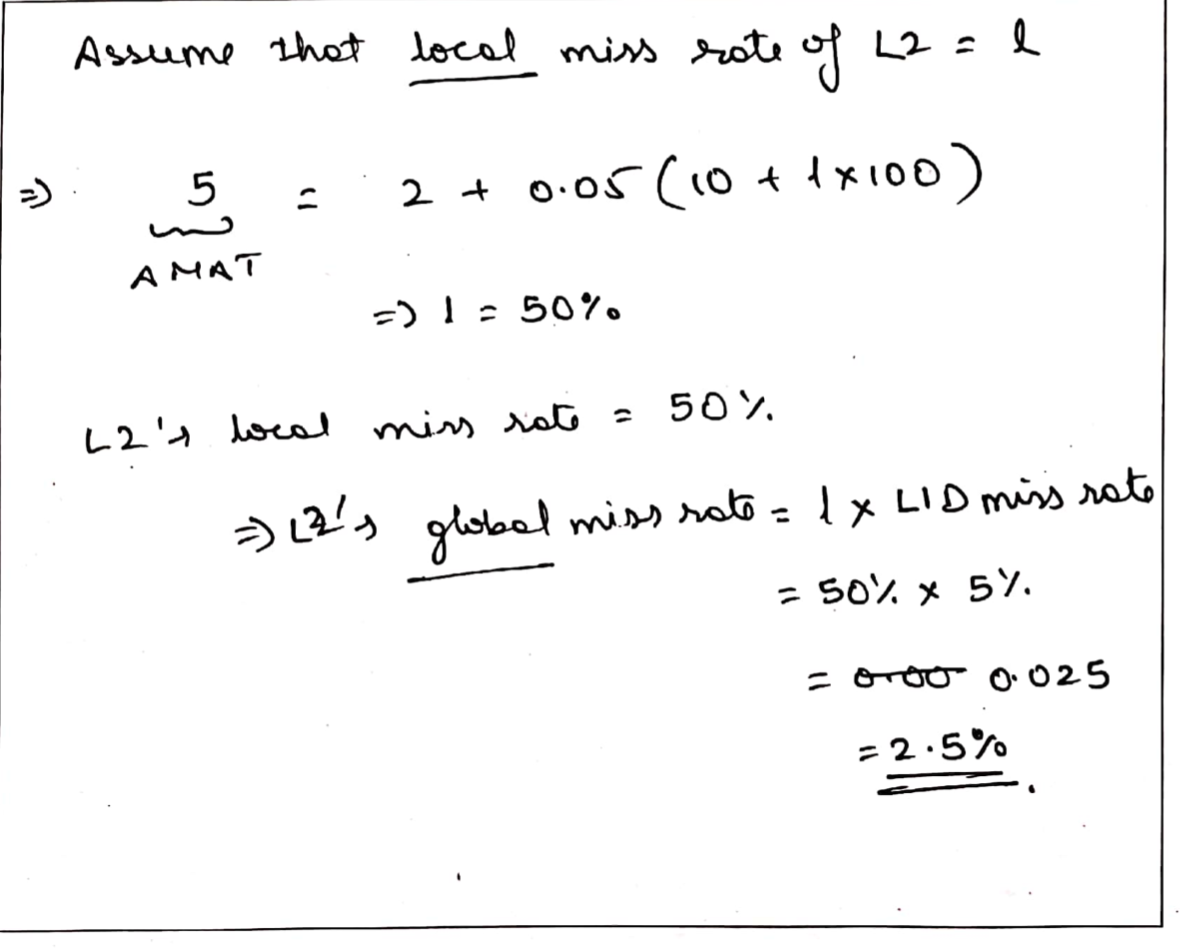 Assume that local miss rate of L2 = l
=> 5 = 2 + 0.05 (10 + l x 100)
AMAT
=> l = 50%
L2's local miss rate = 50%
=> L2's global miss rate = l x L1D miss rate
= 50% x 5%
= 0.00 0.025
= 2.5%.